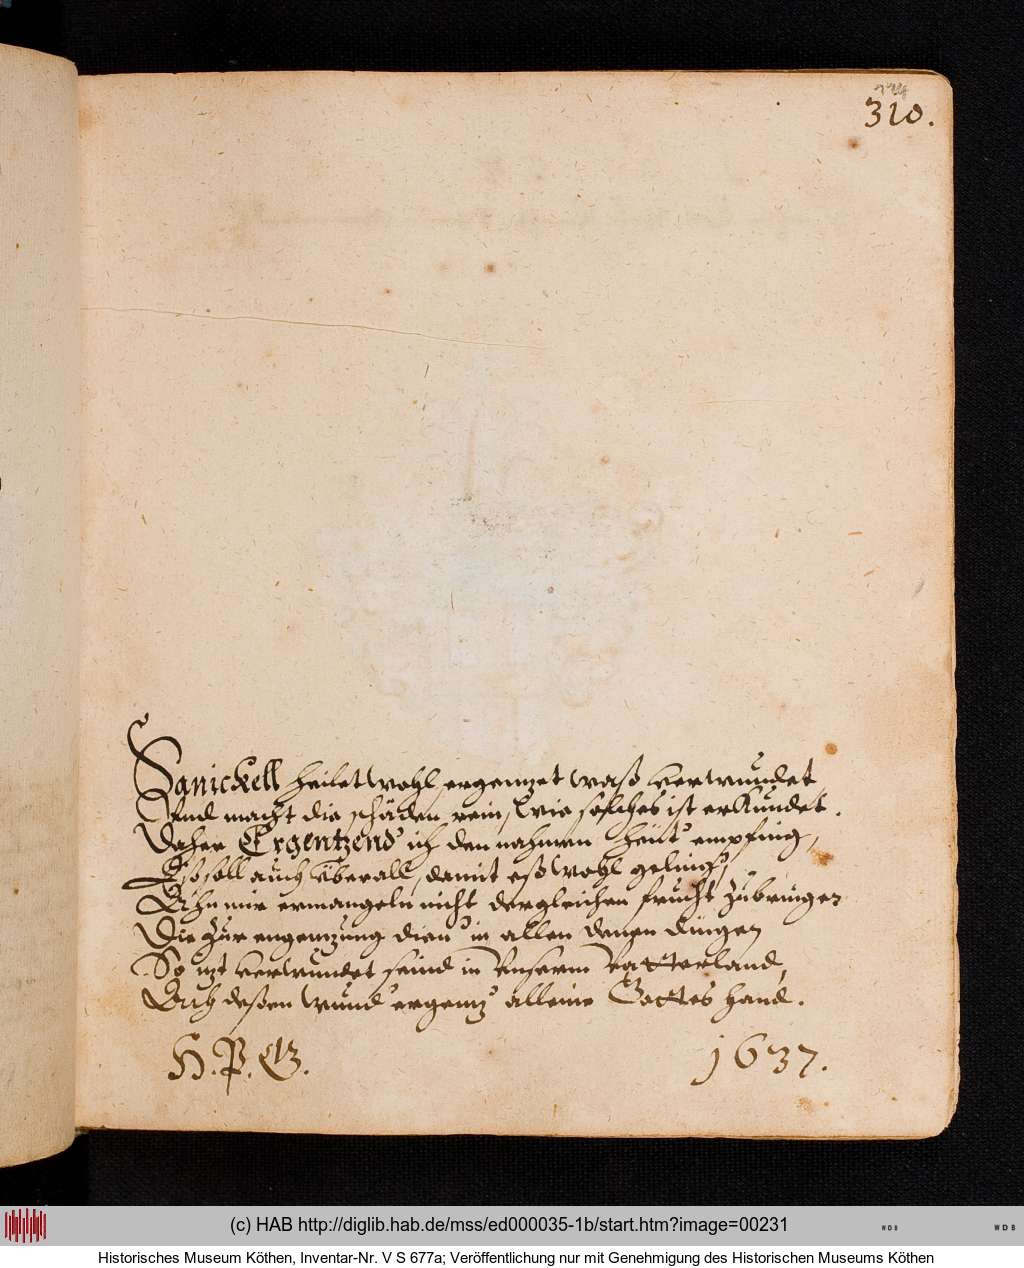 310.
Sanickell heilet wohl, ergenzet waß verwundet
Vnd macht die schäden rein, Wie solches ist erKundet.
Daher Ergentzend' ich den nahmen heut' empfing,
Eß soll auch überall, damit eß wohl geling',
Ahn mir ermangeln nicht dergleichen frucht Zubringen
Die Zur ergenzung dien' in allen denen dingen
So itzt verwundet seind in Vnserm Vatterland,
Auch deßen wund' ergenz' alleine Gottes hand.
1637.
(c) HAB http://diglib.hab.de/mss/ed000035-1b/start.htm?image=00231
WDB
WDB
Historisches Museum Köthen, Inventar-Nr. V S 677a; Veröffentlichung nur mit Genehmigung des Historischen Museums Köthen